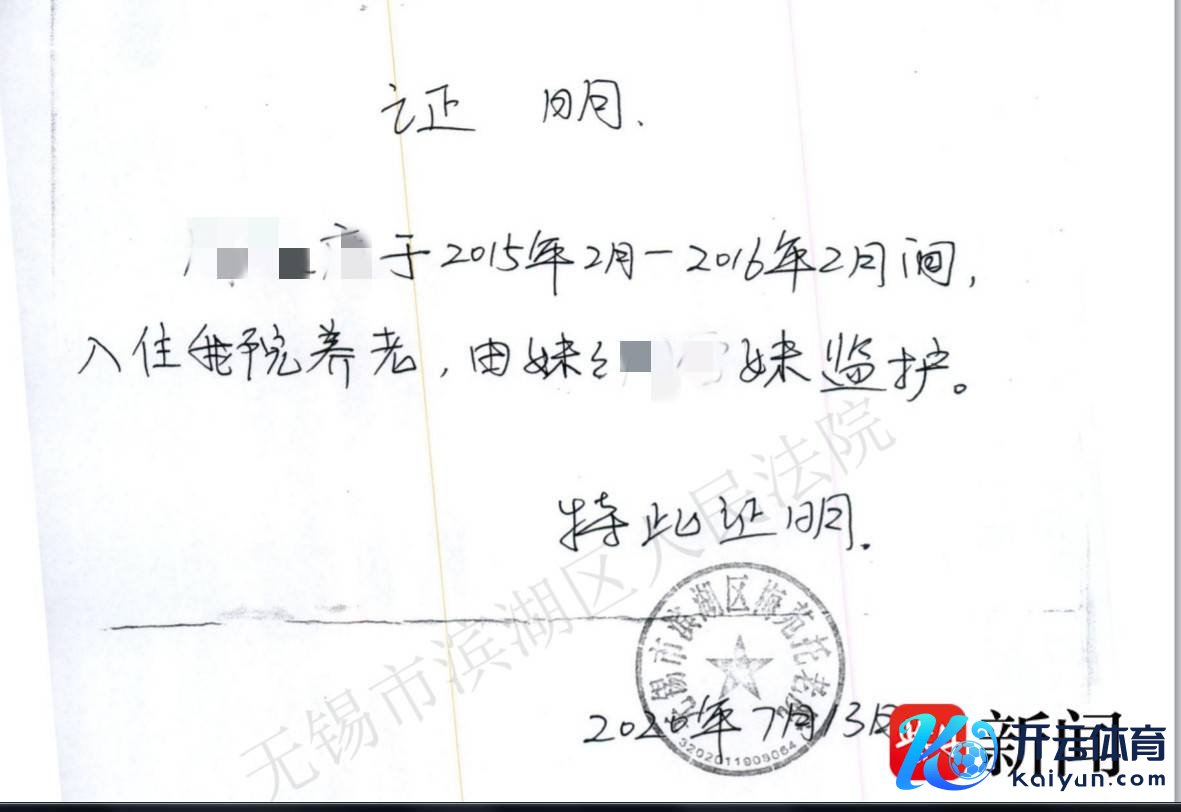 证 明.
于2015年2月—2016年2月间,
入住我院养老,由妹 妹监护。
特此证明.
无锡市滨湖区人民法院
无锡市滨湖区梅苑托老
3202011909064
年7月13日
新闻
开云体育
Kaiyun.com